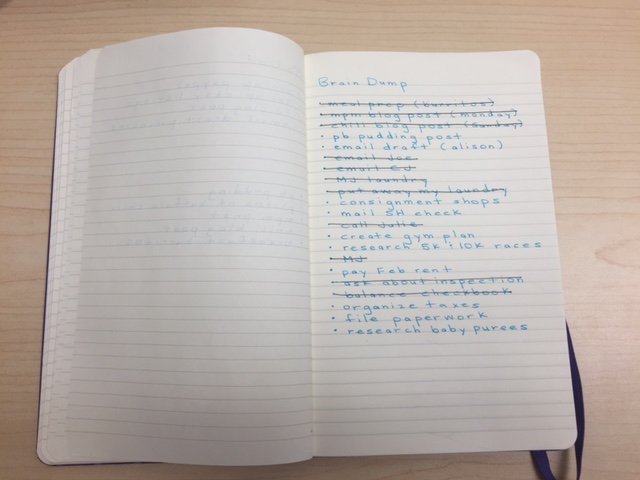 Brain Dump
• meal prep (burritos)
• mpm blog post (monday)
• chili blog post (sunday)
• pb pudding post
• email draft (alison)
• email Joe
• email EJ
• MJ laundry
• put away my laundry
• consignment shops
• mail SH check
• call Julie
• create gym plan
• research 5K : 10K races
• MJ
• pay Feb rent
• ask about inspection
• balance checkbook
• organize taxes
• file paperwork
• research baby purees